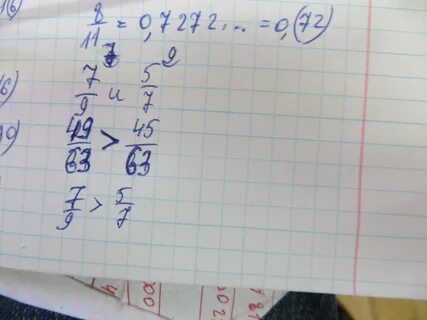 16) 8/11 = 0,7272... = 0,(72)
7/9 ⁷ и 5/7 ⁹
49/63 > 45/63
7/9 > 5/7